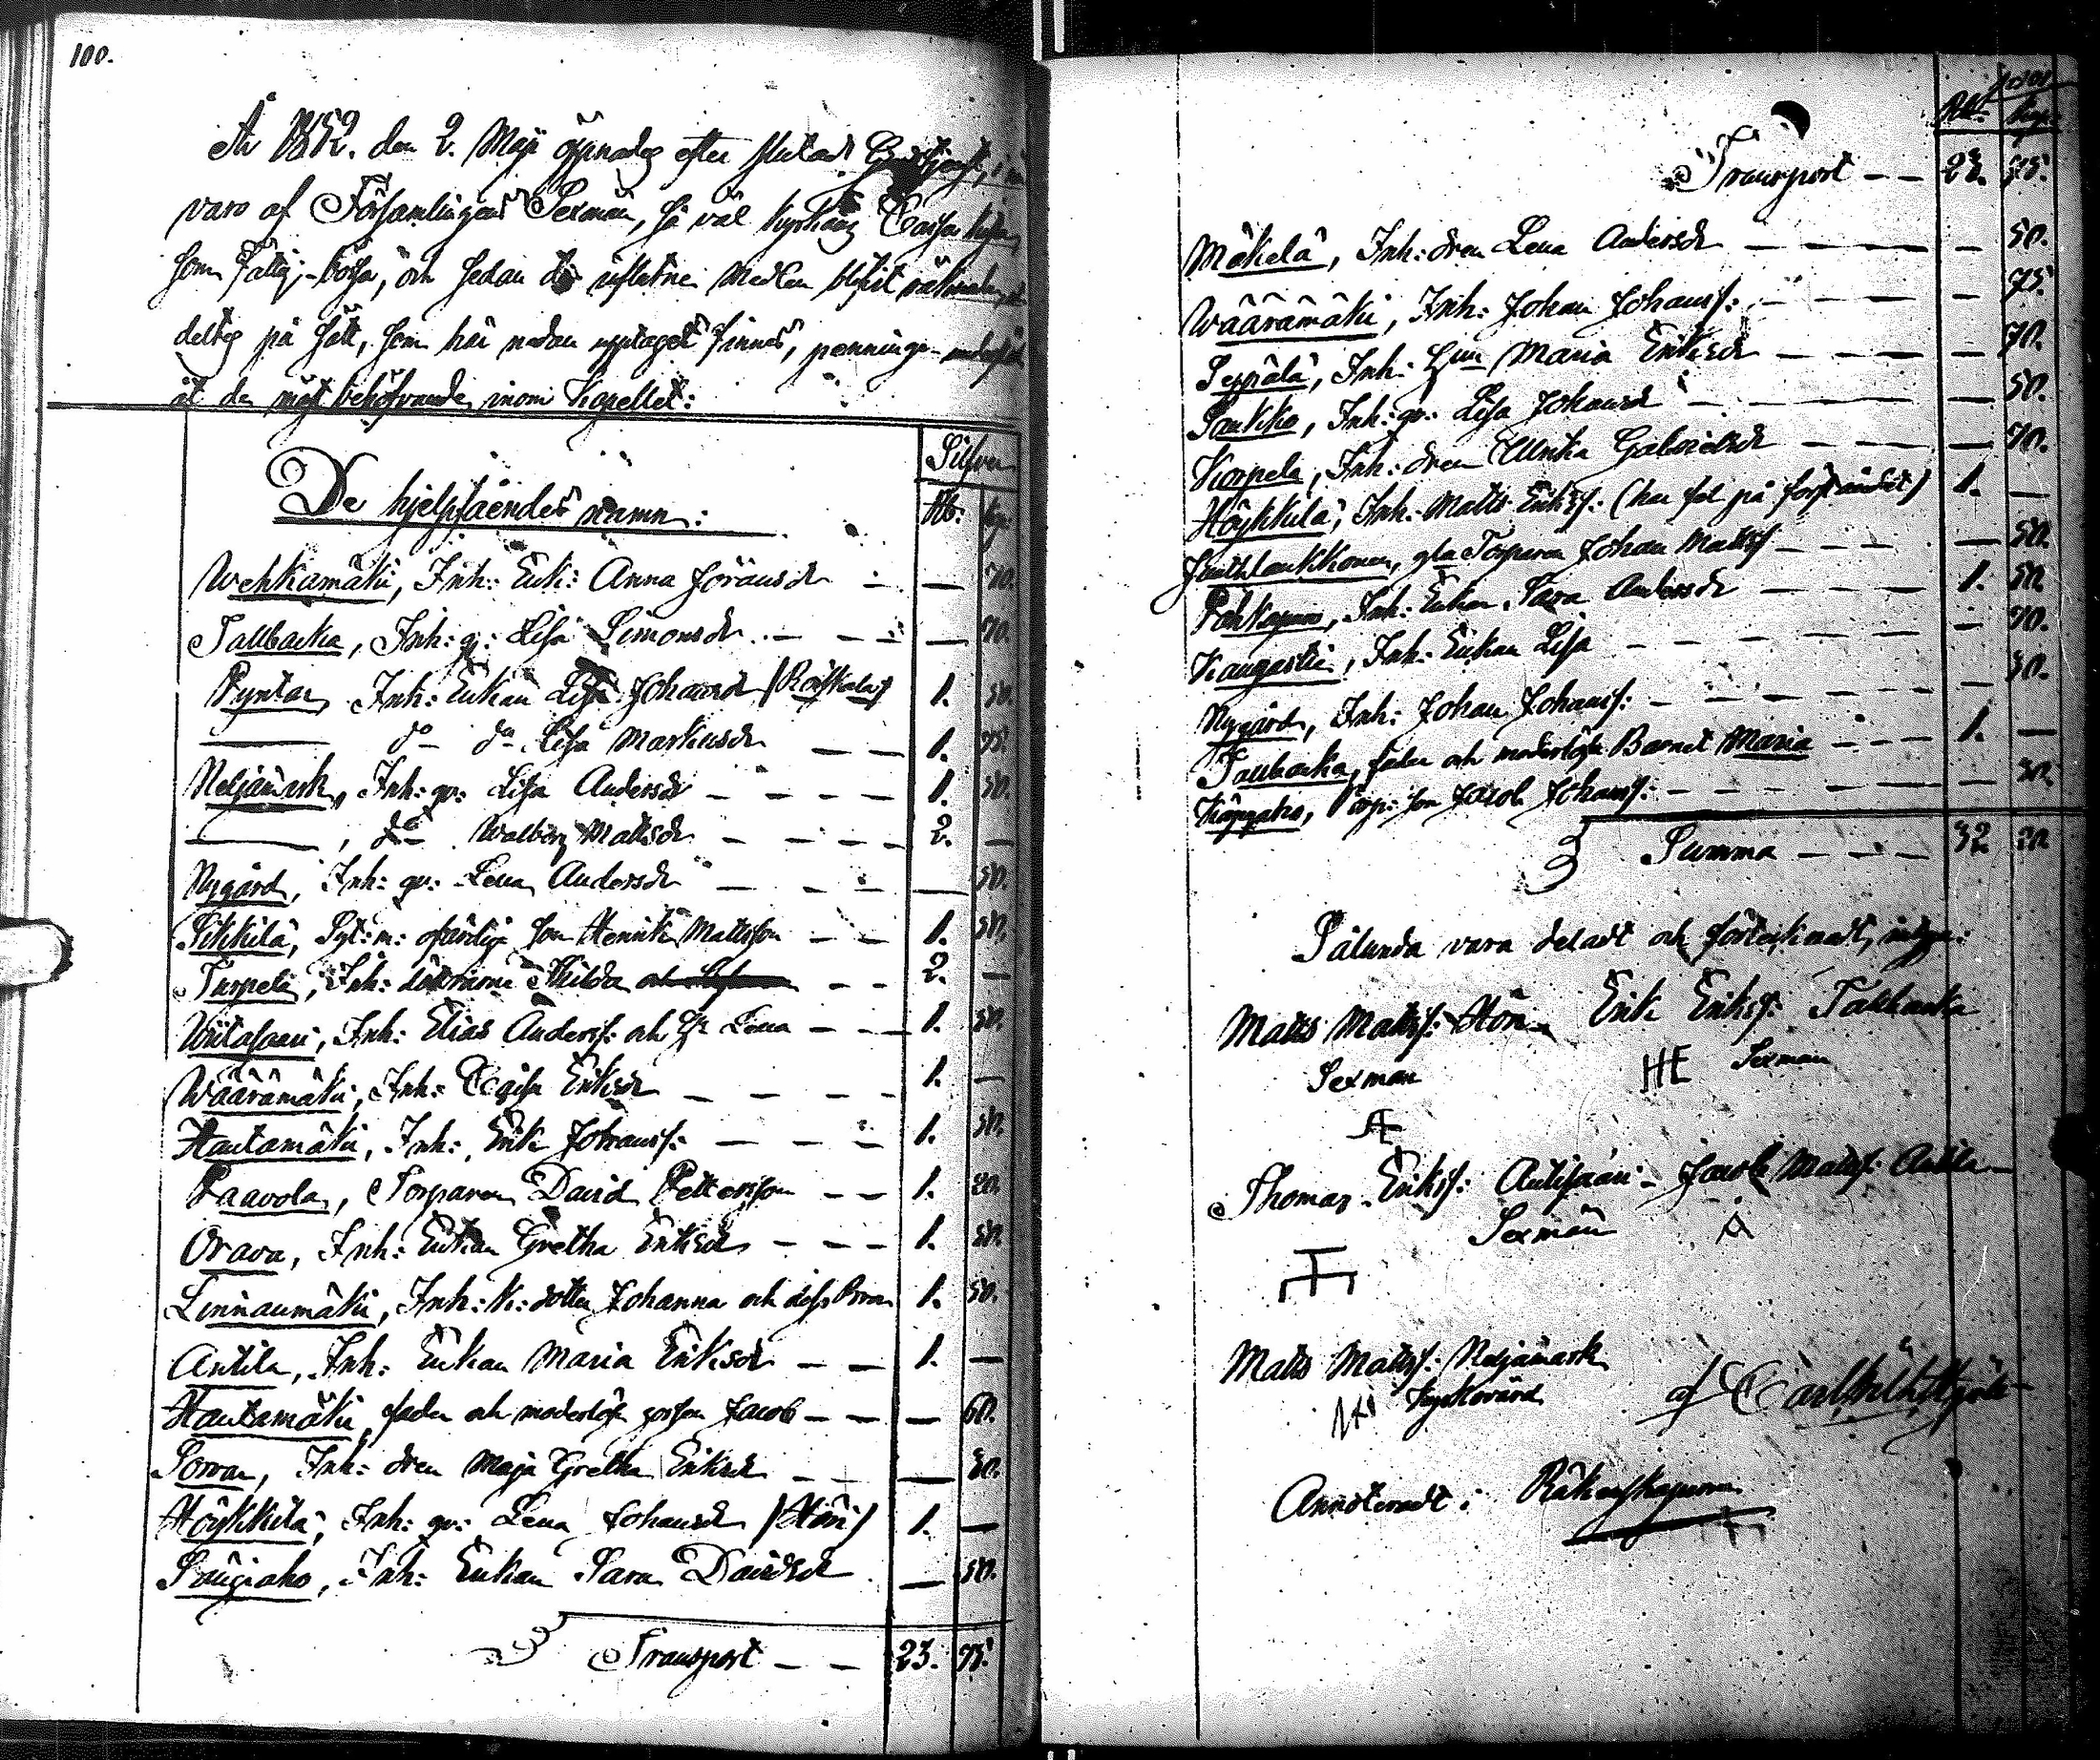 100.
År 1852. den 2. Maji öpnades efter slutad Gudstjenst, i när
varo af Församlingens Sexmän, så väl kyrkans Cassa kista
som Fattig-bössa, och sedan de influtne Medlen blifvit räknade
deltes på sätt, som här nedan upptaget finnes, penninge-understöd
åt de mäst behöfvande inom Kapellet:
De hjelpfåendes namn:
Silfver
Rb. kp.
Wehkamäki, Inh: Enk: Anna Jöransdr — 70.
Tallbacka, Inh: gu: Lisa Simonsdr — 70.
Pyntar, Inh: Enkan Lisa Johansdr / Röiskala / 1. 50.
— do do Lisa Markusdr 1. 75.
Neljämark, Inh: gu: Lisa Andersdr 1. 50.
—, do Walborg Mattsdr 2. —
Nygård, Inh: gu: Lena Andersdr — 50.
Sikkilä, Sytn:m: ofärdige son Henrik Mattsson 1. 50.
Turpela, Inh: döttrarne Thilda och 2. —
Wiitasaari, Inh: Elias Anderss: och Hr Lena 1. 50.
Wäärämäki, Inh: Cajsa Eriksdr 1. —
Hautamäki, Inh: Erik Johanss: 1. 50.
Paavola, Torparen David Pettersson 1. 20.
Orava, Inh: Enkan Gretha Eriksdr 1. 50.
Linnanmäki, Inh: K: dotter Johanna och dess Bror 1. 50.
Antila, Inh: Enkan Maria Eriksdr 1. —
Hautamäki, fader och moderlöse gossen Jacob — 60.
Sorvar, Inh: dren Maja Gretha Eriksdr — 30.
Höykkilä, Inh: gu: Lena Johansdr / Höri / 1. —
Saugiaho, Inh: Enkan Sara Davidsdr — 50.
Transport 23. 75.
Rbl. kop.
Transport 23. 75.
Mäkelä, Inh: dren Lena Andersdr — 50.
Wäärämäki, Inh: Johan Johanss: — 75.
Seppälä, Inh: Hun Maria Eriksdr — 70.
Saukko, Inh: gu: Lisa Johansdr — 50.
Korpela, Inh: dren Ullrika Gabrielsdr — 70.
Höykkilä, Inh: Matts Erikss: (har fel på förståndet) 1. —
gla Torparen Johan Mattss — 50.
Inh: Enkan Sara Andersdr 1. 50.
Kangastie, Inh: Enkan Lisa — 70.
Nygård, Inh: Johan Johanss: — 50.
Tallbacka, fader och moderlösa Barnet Maria 1. —
Torp: son Jacob Johanss:
Summa 32 20
Sålunda vara deladt och förteknadt, intyga:
Matts Mattss: Höri Erik Erikss: Tallbacka
Sexman HE Sexman
Thomas Erikss: Antisaari Jacob Mattss: Antila
Sexmän A
Matts Mattss: Neljämark
Kyrkovärd
Annoteradt i Räkenskaperna